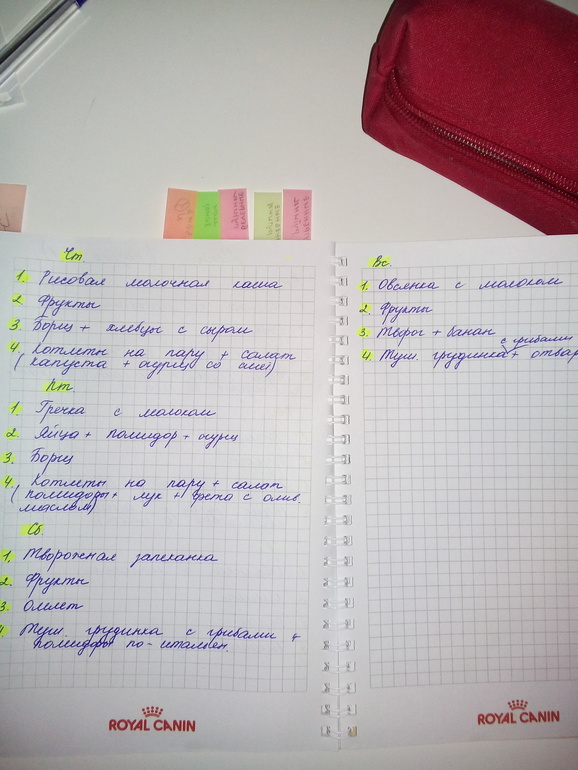 Чт.
1. Рисовая молочная каша
2. Фрукты
3. Борщ + хлебцы с сыром
4. Котлеты на пару + салат
(капуста + огурец со смет)
Пт.
1. Гречка с молоком
2. Яйца + помидор + огурец
3. Борщ
4. Котлеты на пару + салат
(помидоры + лук + фета с олив.
маслом)
Сб.
1. Творожная запеканка
2. Фрукты
3. Омлет
4. Туш. грудинка с грибами +
помидоры по-итальян.
ROYAL CANIN
Вс.
1. Овсянка с молоком
2. Фрукты
3. Творог + банан
с грибами
4. Туш. грудинка + отвар
ROYAL CANIN